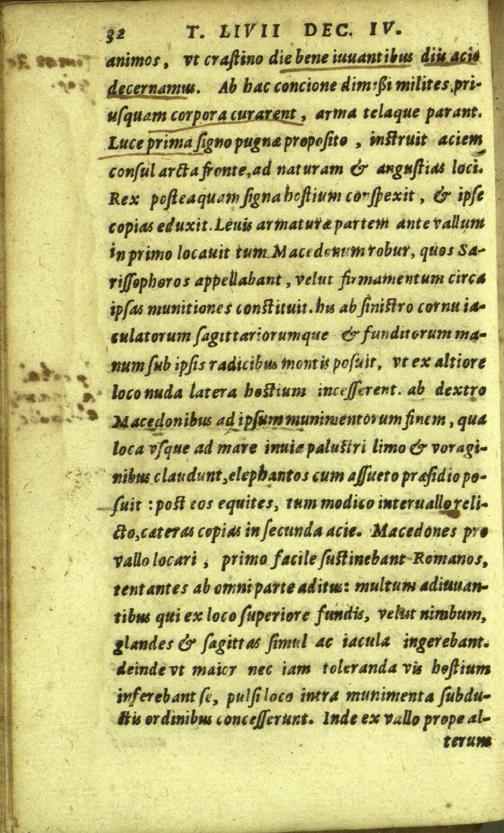 32 T. LIVII DEC. IV.
animos, vt crastino die bene iuuantibus diis acie
decernamus. Ab hac concione dimißi milites, pri-
usquam corpora curarent, arma telaque parant.
Luce prima signo pugnæ proposito, instruit aciem
consul arcta fronte, ad naturam & angustias loci.
Rex posteaquam signa hostium conspexit, & ipse
copias eduxit. Leuis armaturæ partem ante vallum
in primo locauit tum Macedonum robur, quos Sa-
rissophoros appellabant, velut firmamentum circa
ipsas munitiones constituit. his ab sinistro cornu ia-
culatorum sagittariorumque & funditorum ma-
num sub ipsis radicibus montis posuit, vt ex altiore
loco nuda latera hostium incesserent. ab dextro
Macedonibus ad ipsum munimentorum finem, qua
loca vsque ad mare inuia palustri limo & voragi-
nibus claudunt, elephantos cum assueto præsidio po-
suit : post eos equites, tum modico interuallo reli-
cto, cæteras copias in secunda acie. Macedones pro
vallo locati, primo facile sustinebant Romanos,
tentantes ab omni parte aditus: multum adiuuan-
tibus qui ex loco superiore fundis, velut nimbum,
glandes & sagittas simul ac iacula ingerebant.
deinde vt maior nec iam toleranda vis hostium
inferebant se, pulsi loco intra munimenta subdu-
ctis ordinibus concesserunt. Inde ex vallo prope al-
terum